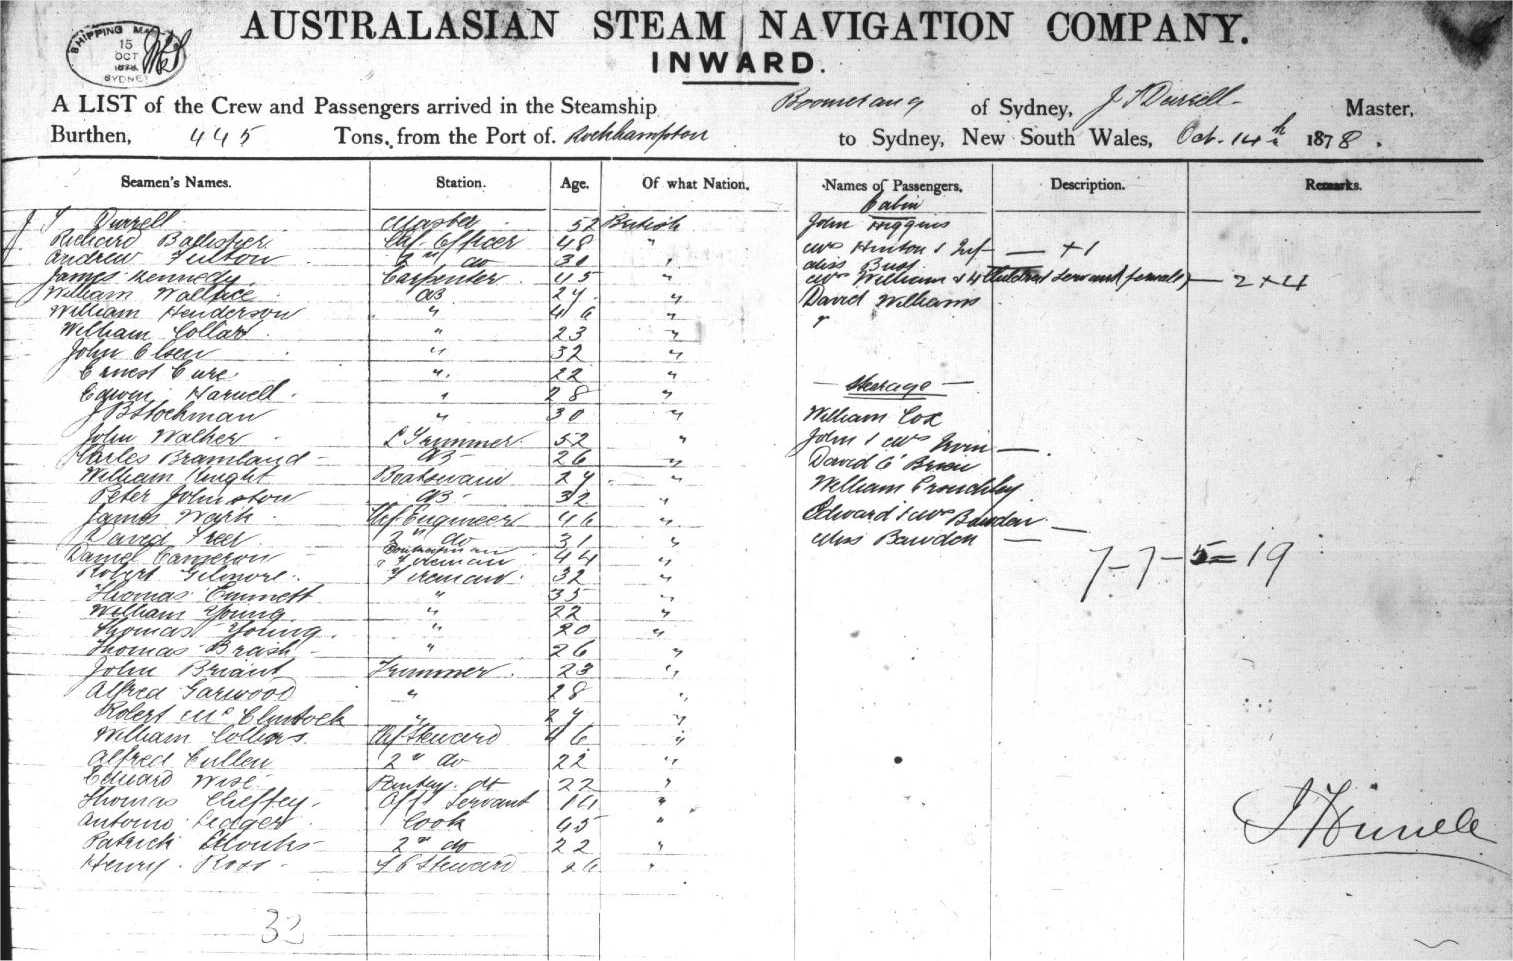 SHIPPING MASTER
15
OCT
1878
SYDNEY
AUSTRALASIAN STEAM NAVIGATION COMPANY.
INWARD.
A LIST of the Crew and Passengers arrived in the Steamship Boomerang of Sydney, J T Durrell Master,
Burthen, 445 Tons, from the Port of Rockhampton to Sydney, New South Wales, Oct. 14th 1878.
Seamen's Names. Station. Age. Of what Nation. Names of Passengers. Description. Remarks.
Cabin
J T Durrell Master 52 British John Higgins
Richard Ballister Chf. Officer 48 " Mrs Hinton & Inf — + 1
Andrew Fulton 2nd do 30 " Miss
James Kennedy Carpenter 45 " Mrs William & 4 Children Servant (female) — 2 + 4
William Wallace AB 27 " David Williams
William Henderson " 46 "
William Collar " 23 "
John Olsen " 32 "
Ernest Cure " 22 "
Edwin Harwell " 28 " — Steerage —
J B Stockman " 30 " William Cox
John Walker L Trimmer 52 " John & Mrs Irvin —
Charles Bramland AB 26 " David O'Brien
William Knight Boatswain 27 " William Crouchley
Peter Johnston AB 32 " Edward & Mrs Bawden —
James Wark Chf Engineer 46 " Miss Bawden —
David Freer 2nd do 31 "
Daniel Cameron Fireman 44 " 7 - 7 - 5 = 19
Robert Gilmore Fireman 32 "
Thomas Emmett " 35 "
William Young " 22 "
Thomas Young " 20 "
Thomas Brash " 26 "
John Briant Trimmer 23 "
Alfred Garwood " 28 "
Robert McClintock " 27 "
William Collins Chf Steward 46 "
Alfred Cullen 2" do 22 "
Edward Wise Pantry. do 22 "
Thomas Cheffey Offs Servant "
Antonio Ledger Cook 45 "
Patrick 2nd do 22 "
Henry Ross Steward 26 "
33